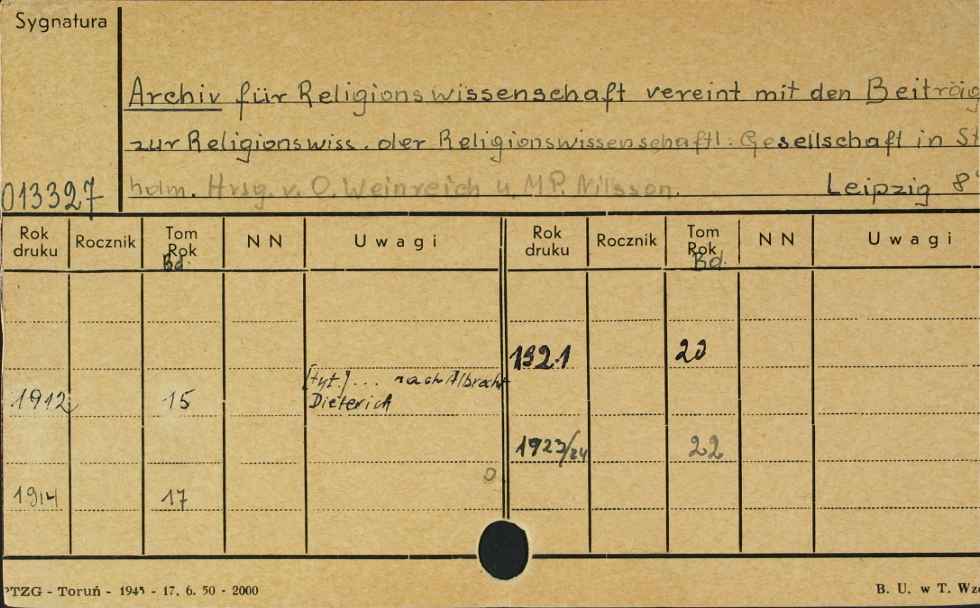 Sygnatura
Archiv für Religionswissenschaft vereint mit den Beiträg
zur Religionswiss. der Religionswissenschaftl. Gesellschaft in St
holm. Hrsg. v. O. Weinreich u. M.P. Nilsson. Leipzig 8°
013327
Rok druku Rocznik Tom Rok Bd. N N Uwagi Rok druku Rocznik Tom Rok Bd. N N Uwagi
1921 20
[tyt.] ... nach Albrecht
1912 15 Dieterich
1923/24 22
1914 17
PTZG - Toruń - 1945 - 17. 6. 50 - 2000 B. U. w T. Wz